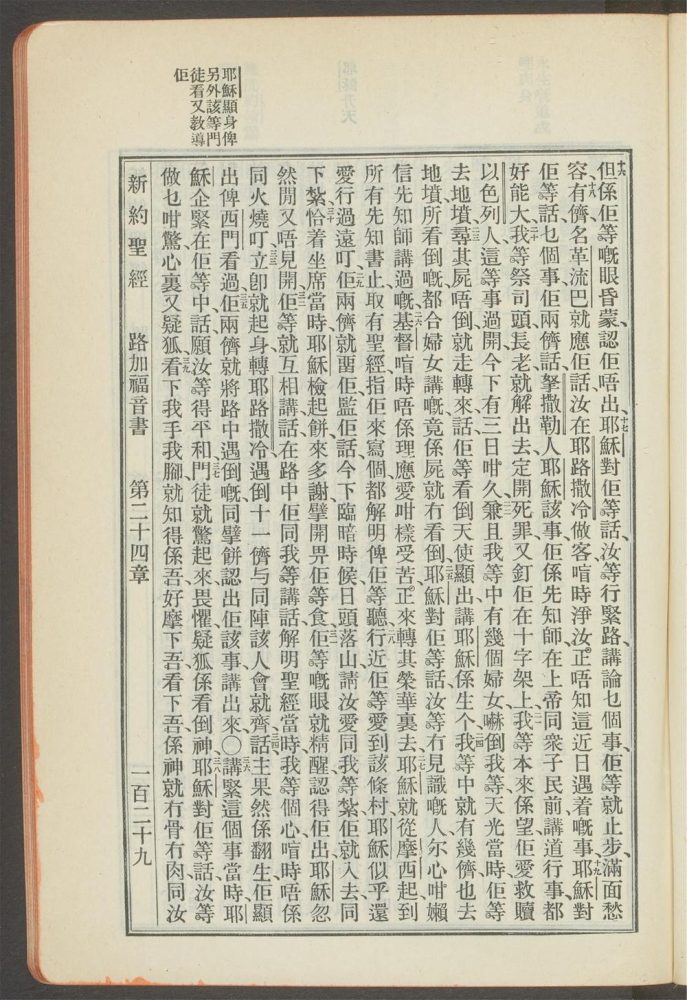 耶穌顯身俾
另外該等門
徒看又教導
佢
十六但係佢等嘅眼昏蒙、認佢唔出、十七耶穌對佢等話、汝等行緊路、講論乜個事、佢等就止步、滿面愁
容、十八有儕名革流巴、就應佢話、汝在耶路撒冷做客、喧時淨汝正唔知這近日遇着嘅事、十九耶穌對
佢等話、乜個事、佢兩儕話、拏撒勒人耶穌該事、佢係先知師、在上帝同衆子民前、講道行事、都
好能大、二十我等祭司頭長老、就解出去定開死罪、又釘佢在十字架上、二一我等本來係望佢愛救贖
以色列人、這等事過開、今下有三日咁久、二二兼且我等中有幾個婦女、嚇倒我等、天光當時、佢等
去地墳、二三尋其屍唔倒、就走轉來話、佢等看倒天使顯出、講耶穌係生个、二四我等中就有幾儕也去
地墳、所看倒嘅都合婦女講嘅、竟係屍就冇看倒、二五耶穌對佢等話、汝等冇見識嘅人尔、心咁懶
信先知師講過嘅、二六基督喧時唔係理應愛咁樣受苦、正來轉其榮華裏去、二七耶穌就從摩西起、到
所有先知書止、取有聖經指佢來寫個、都解明俾佢等聽、二八行近佢等愛到該條村、耶穌似乎還
愛行過遠叮、二九佢兩儕就畱佢監佢話、今下臨暗時候、日頭落山、請汝愛同我等紮、佢就入去同
下紮、三十恰着坐席當時、耶穌檢起餅來、多謝擘開畀佢等食、三一佢等嘅眼就精醒、認得佢出、耶穌忽
然閒又唔見開、三二佢等就互相講話、在路中佢同我等講話、解明聖經當時、我等個心喧時唔係
同火燒叮、三三立卽就起身轉耶路撒冷、遇倒十一儕与同陣該人會就齊、三四話主果然係翻生、佢顯
出俾西門看過、三五佢兩儕就將路中遇倒嘅、同擘餅認出佢該事、講出來、〇三六講緊這個事當時、耶
穌企緊在佢等中、話願汝等得平和、三七門徒就驚起來畏懼、疑狐係看倒神、三八耶穌對佢等話、汝等
做乜咁驚、心裏又疑狐、三九看下我手我腳、就知得係吾、好摩下吾、看下吾、係神就冇骨冇肉、同汝
新約聖經　路加福音書　第二十四章　一百二十九